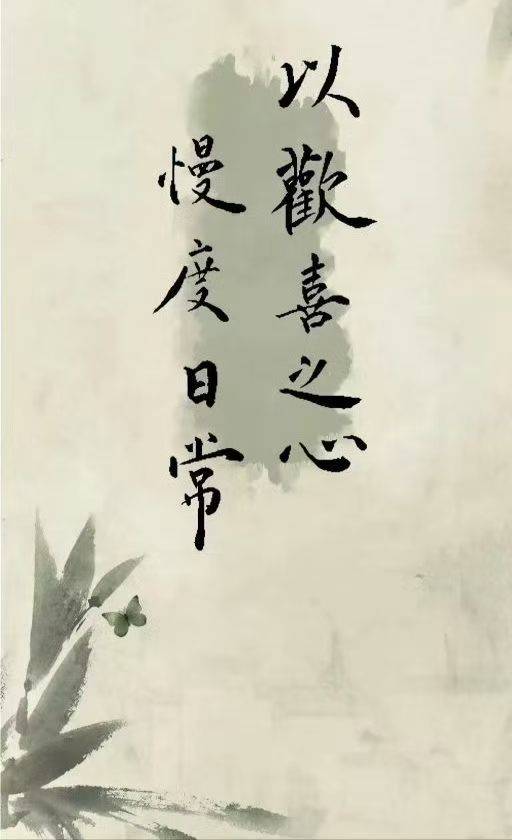 以歡喜之心
慢度日常